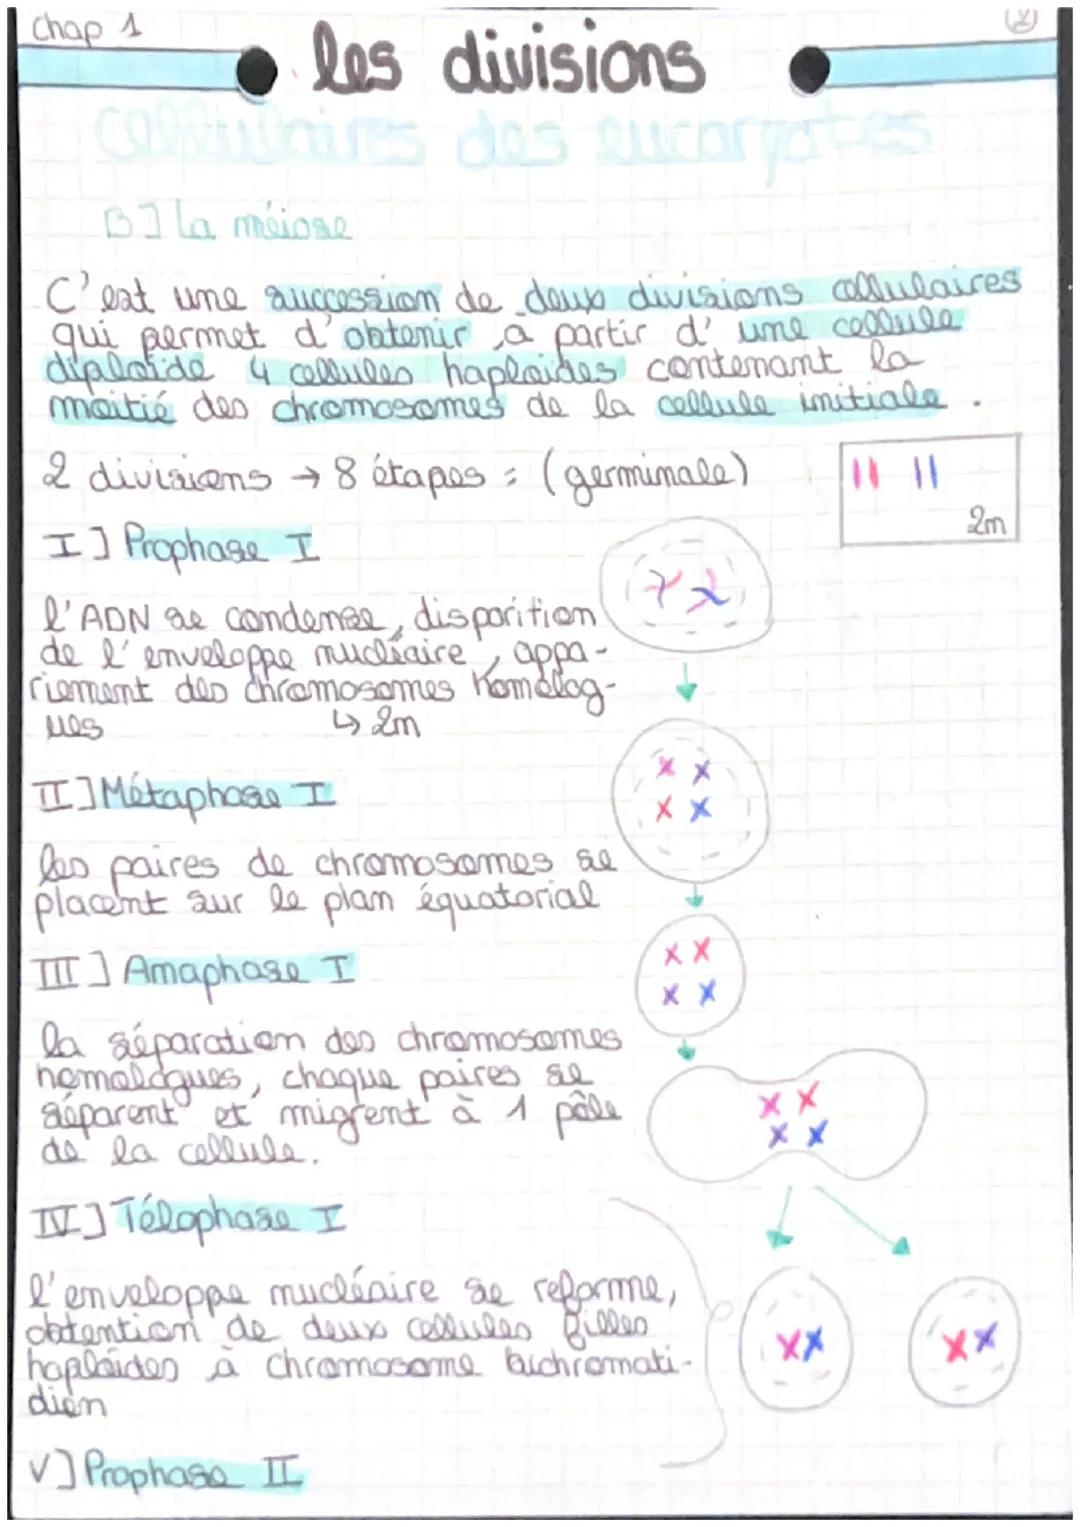 Chap 1
(2)
les divisions
cellulaires des eucaryotes
B] La méiose
C'est une succession de deux divisions cellulaires
qui permet d'obtenir, à partir d'une cellule
diploïde 4 cellules haploïdes contenant la
moitié des chromosomes de la cellule initiale.
2 divisions → 8 étapes : (germinale)
2m
I] Prophase I
l'ADN se condense, disparition
de l'enveloppe nucléaire, appa-
riement des chromosomes homolog-
ues ↳ 2m
II] Métaphase I
les paires de chromosomes se
placent sur le plan équatorial
III] Anaphase I
la séparation des chromosomes
homologues, chaque paires se
séparent et migrent à 1 pôle
de la cellule.
IV] Télophase I
l'enveloppe nucléaire se reforme,
obtention de deux cellules filles
haploïdes à chromosome bichromati-
dien
V] Prophase II